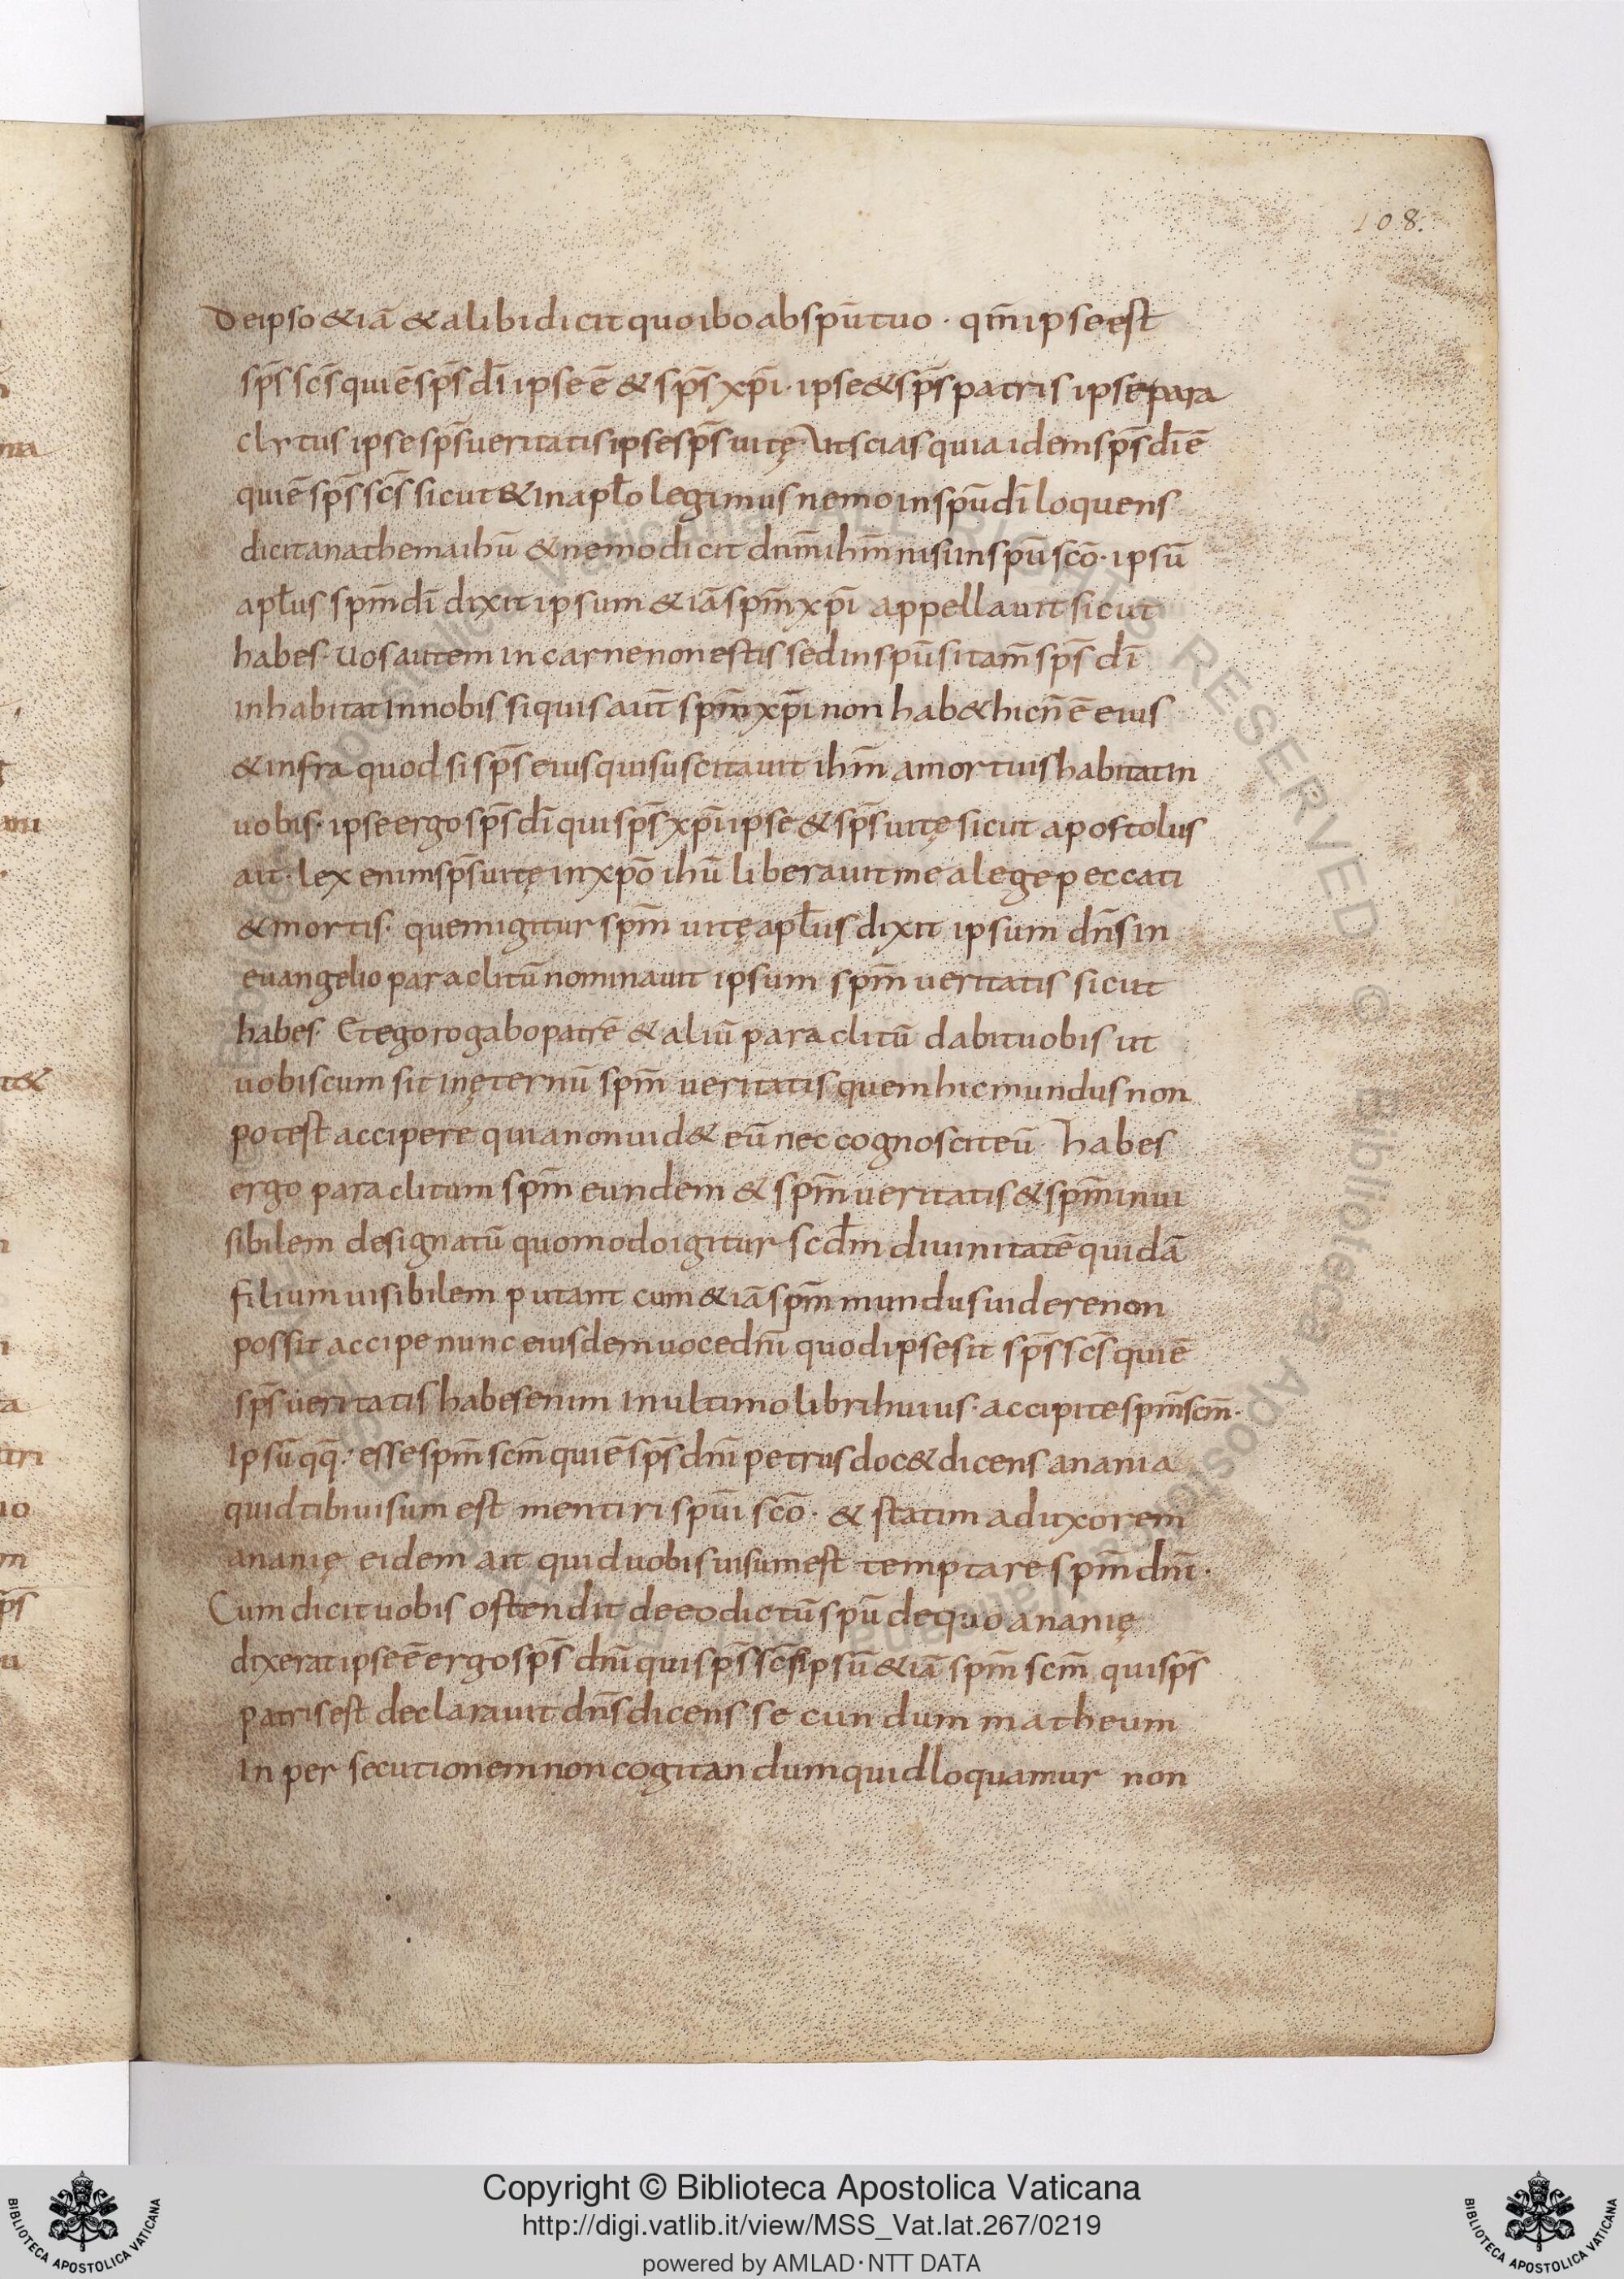 108.
De ipso &iā & alibi dicit quo ibo ab spū tuo · qm̄ ipse est
sp̄s sc̄s qui ē sp̄s dī ipse ē & sp̄s xp̄i · ipse & sp̄s patris ipse para
clytus ipse sp̄s ueritatis ipse sp̄s uitę · Ut scias quia idem sp̄s dī ē
qui ē sp̄s sc̄s sicut & in apło legimus nemo in spū dī loquens
dicit anathema ihū & nemo dicit dnm̄ ihm̄ nisi in spū scō · ipsū
apłus spm̄ dī dixit ipsum &iā spm̄ xp̄i appellauit sicut
habes · Uos autem in carne non estis sed in spū si tam̄ sp̄s dī
inhabitat in nobis si quis aut̄ spm̄ xp̄i non hab& hic n̄ ē eius
& infra quod si sp̄s eius qui suscitauit ihm̄ a mortuis habitat in
uobis · ipse ergo sp̄s dī qui sp̄s xp̄i ipse & sp̄s uitę sicut apostolus
ait · lex enim sp̄s uitę in xpō ihū liberauit me a lege peccati
& mortis · quem igitur spm̄ uitę apłus dixit ipsum dn̄s in
euangelio paraclitū nominauit ipsum spm̄ ueritatis sicut
habes · Et ego rogabo patrē & aliū paraclitū dabit uobis ut
uobiscum sit in ęternū spm̄ ueritatis quem hic mundus non
potest accipere quia non uid& eū nec cognoscit eū · habes
ergo paraclitum spm̄ eundem & spm̄ ueritatis & spm̄ inui
sibilem designatū quomodo igitur scd̄m diuinitatē quidā
filium uisibilem putant cum &iā spm̄ mundus uidere non
possit accipe nunc eiusdem uoce dn̄i quod ipse sit sp̄s sc̄s qui ē
sp̄s ueritatis habes enim in ultimo libri huius · accipite spm̄ scm̄ ·
Ipsū qq: esse spm̄ scm̄ qui ē sp̄s dn̄i petrus doc& dicens anania
quid tibi uisum est mentiri spūi scō · & statim ad uxorem
ananię eidem ait quid uobis uisum est temptare spm̄ dn̄i ·
Cum dicit uobis ostendit de eo dictū spū de quo ananię
dixerat ipse ē ergo sp̄s dn̄i qui sp̄s sc̄s ipsū &iā spm̄ scm̄ qui sp̄s
patris est declarauit dn̄s dicens secundum matheum
In persecutionem non cogitandum quid loquamur non
Copyright © Biblioteca Apostolica Vaticana
http://digi.vatlib.it/view/MSS_Vat.lat.267/0219
powered by AMLAD·NTT DATA
BIBLIOTECA APOSTOLICA VATICANA
BIBLIOTECA APOSTOLICA VATICANA